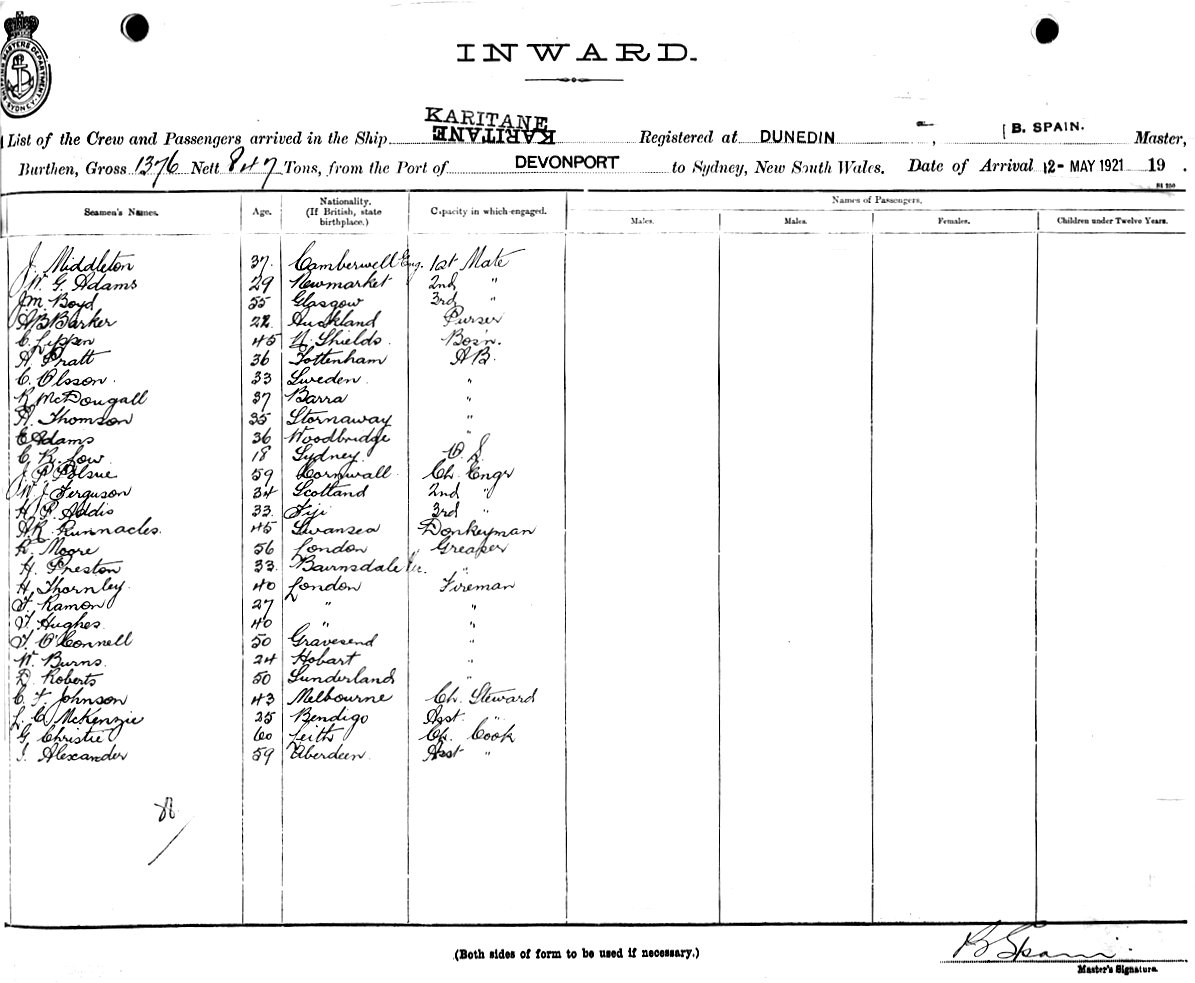 SHIPPING MASTERS DEPARTMENT
SYDNEY
INWARD.
List of the Crew and Passengers arrived in the Ship KARITANE KARITANE Registered at DUNEDIN , B. SPAIN. Master,
Burthen, Gross 1376 Nett 847 Tons, from the Port of DEVONPORT to Sydney, New South Wales. Date of Arrival 12- MAY 1921 19 .
Seamen's Names. Age. Nationality. (If British, state birthplace.) Capacity in which engaged. Names of Passengers.
Males. Males. Females. Children under Twelve Years.
J. Middleton 37. Camberwell Eng. 1st Mate
W. G. Adams 29 Newmarket 2nd "
J.M. Boyd 55 Glasgow 3rd "
A B Barker 22 Auckland Purser
C. Lippen 45 N. Shields Bos'n.
A. Pratt 36 Tottenham AB.
C. Olsson. 33 Sweden. "
R McDougall 37 Barra "
A. Thomson 35 Stornaway "
E Adams 36 Woodbridge "
C. R. Low 18 Sydney. O.S.
J. P. Polsue 59 Cornwall Ch. Engr
W. J. Ferguson 34 Scotland 2nd "
H. P. Addis 33. Fiji 3rd "
A R. Runnacles. 45 Swansea Donkeyman
R. Moore 56 London Greaser
H. Preston 33. Bairnsdale Vic. "
H. Thornley 40 London Fireman
F. Ramon 27 " "
F. Hughes 40 " "
T. O'Connell 50 Gravesend "
W. Burns. 24 Hobart "
D. Roberts 50 Sunderland "
C. F. Johnson 43 Melbourne Ch. Steward
L. C. McKenzie 25 Bendigo Asst. "
G. Christie 60 Leith Ch. Cook
J. Alexander 59 Aberdeen. Asst "
(Both sides of form to be used if necessary.)
B Spain
Master's Signature.